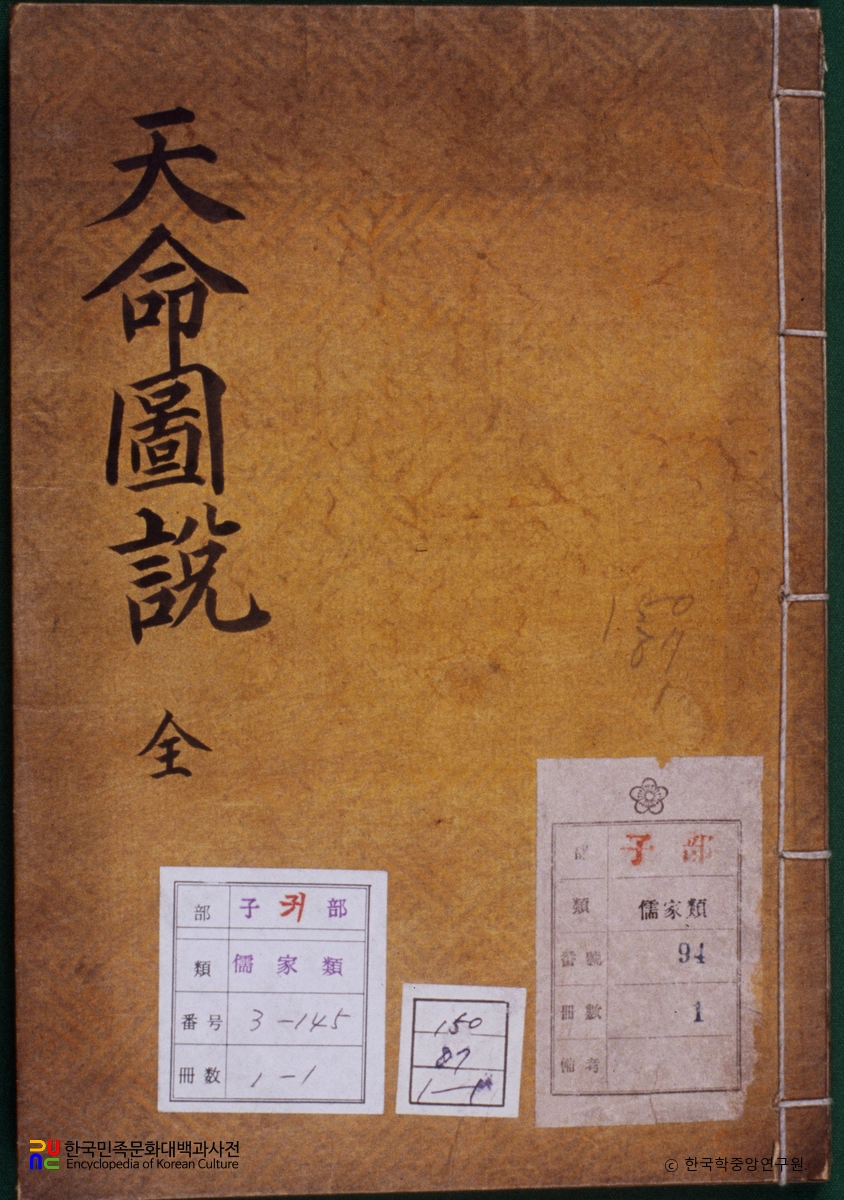 天命圖說
全
150
87
部 子 귀 部
類 儒家類
番号 3-145
冊数 1-1
150
87
1-1
部 子部
類 儒家類
番號 94
冊數 1
備考
한국민족문화대백과사전
Encyclopedia of Korean Culture
ⓒ 한국학중앙연구원